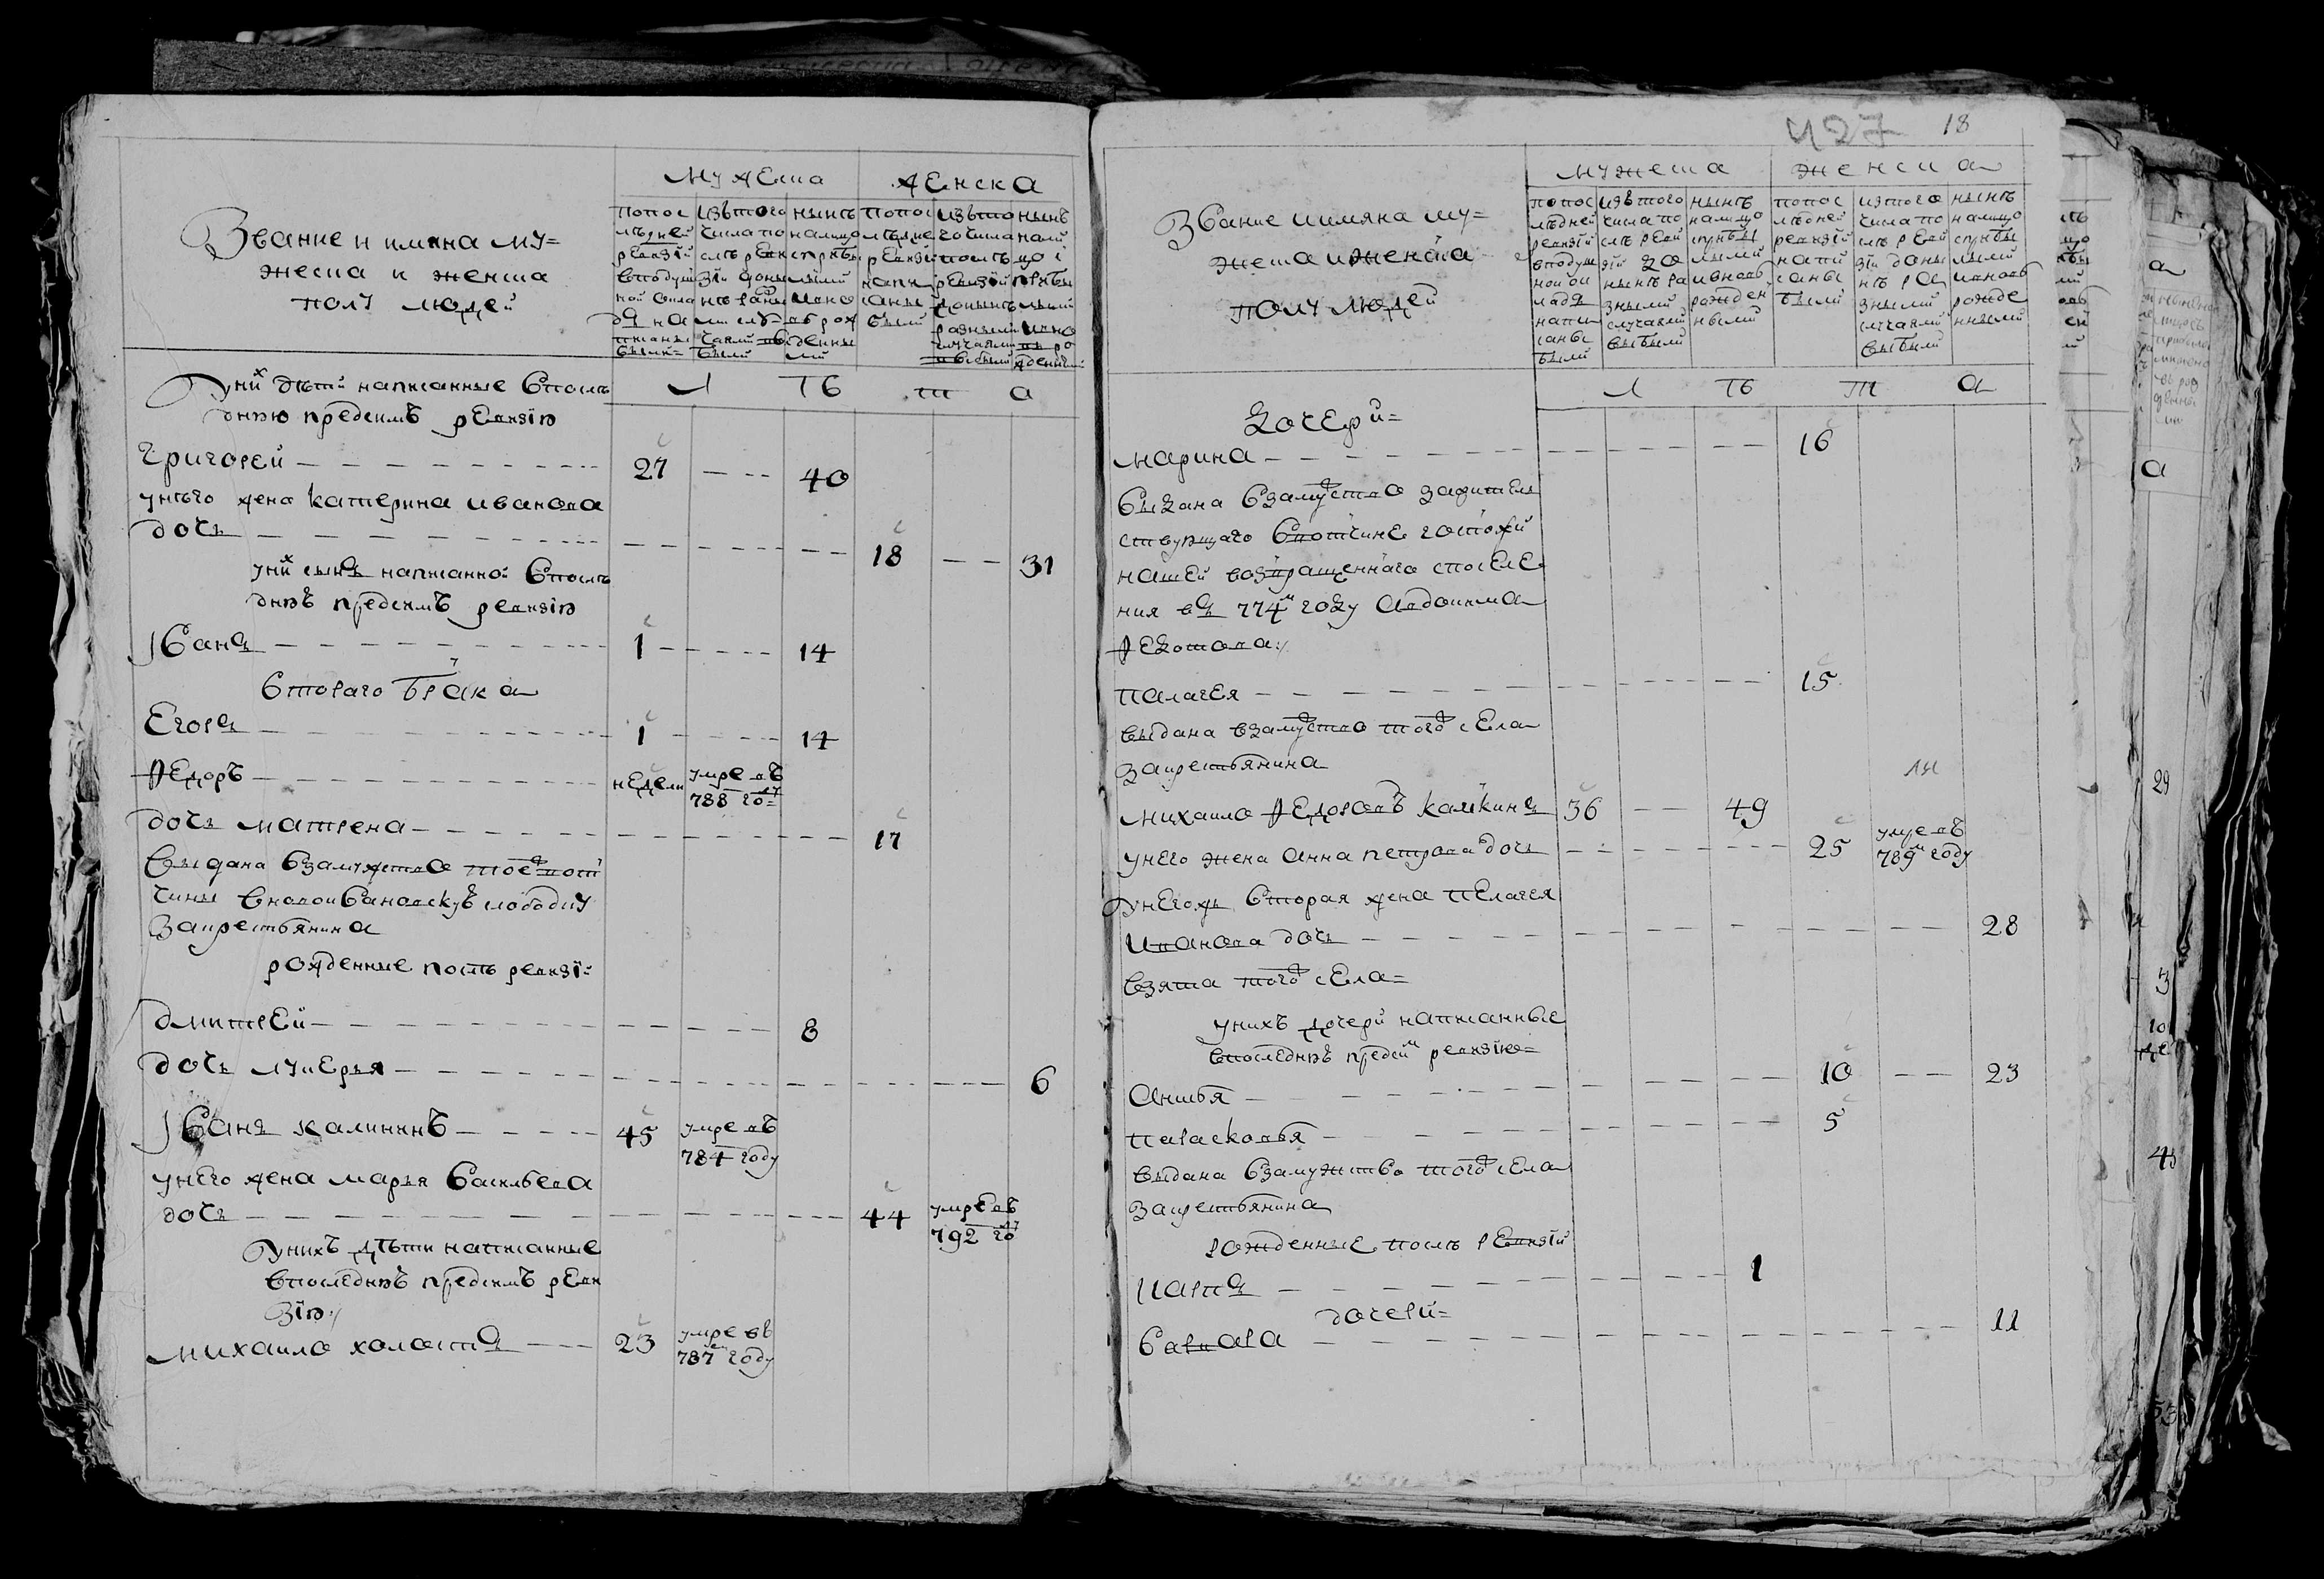 Звание и имяна му=
жеска и женска
полу людей
мужеска
женска
попос
лѣдней
ревизіи
вподуш
ной окла
дъ на
писаны
были=
изътого
числа по
слѣ реви
зіи доны
нѣ разны
ми слу=
чаями вы
были
нынѣ
налицо
спрыбы
лыми
ивно
въ рож
денны
ми
попос
лѣдне
ревизіи
напи
саны
были
изъто
го числа
послѣ
ревизіи
донынѣ
разными
случаями
выбыли
нынѣ
нали
цо с
прибы
лыми
ивно
въ ро
жденными
Л ѣ т а
Унихъ дѣти написанные впослѣ
днюю предсимъ ревизію
Григорей 27 40
унего жена катерина иванова
дочь 18 31
унихъ сынъ написанной впослѣ
днюю предсимъ ревизію
Иванъ 1 14
втораго брака
Егоръ 1 14
Ѳедоръ недели умре въ
788 го=
дочь матрена 17
выдана взамужство тоей вот
чины вновоивановскую слободку
закрестьянина
рожденные послѣ ревизіи
дмитрей 8
дочь лукерья 6
Иванъ калининъ 45 умре въ
784 году
унего жена марья васильева
дочь 44 умре въ
792 го
Унихъ дѣти написанные
впоследнюю предсимъ реви
зію
михаило холостъ 23 умре въ
787 году
427 18
Звание иимяна му=
жеска иженска
полу людей
мужеска
женска
попос
лѣдней
ревизіи
вподуш
ной ок
ладъ
напи
саны
были
изътого
числа по
слѣ реви
зіи до
нынѣ ра
зными
случаями
выбыли
нынѣ
налицо
сприбы
лыми
ивновь
рожден
ными
попос
лѣдней
ревизіи
напи
саны
были
изтого
числа по
слѣ реви
зіи доны
нѣ ра
зными
случаями
выбыли
нынѣ
налицо
сприбы
лыми
ивновь
рожде
нными
Л ѣ т а
дочери=
марина 16
выдана взамужство зажитель
ствующаго ввотчине госпожи
нашей возвращеннаго споселе
ния въ 774м году авдокима
Ѳедотова
палагея 15
выдана взамужство тогож села
закрестьянина
михаило Ѳедоровъ камкинъ 36 49
унего жена анна петрова дочь 25 умре въ
789м году
Унегожъ вторая жена пелагея
иванова дочь 28
взята тогож села=
унихъ дочери написанные
впоследнюю предсимъ ревизію=
анисья 10 23
парасковья 5
выдана взамужство тогож села
закрестьянина
рожденные послѣ ревизіи
карпъ 1
дочери=
варвара 11